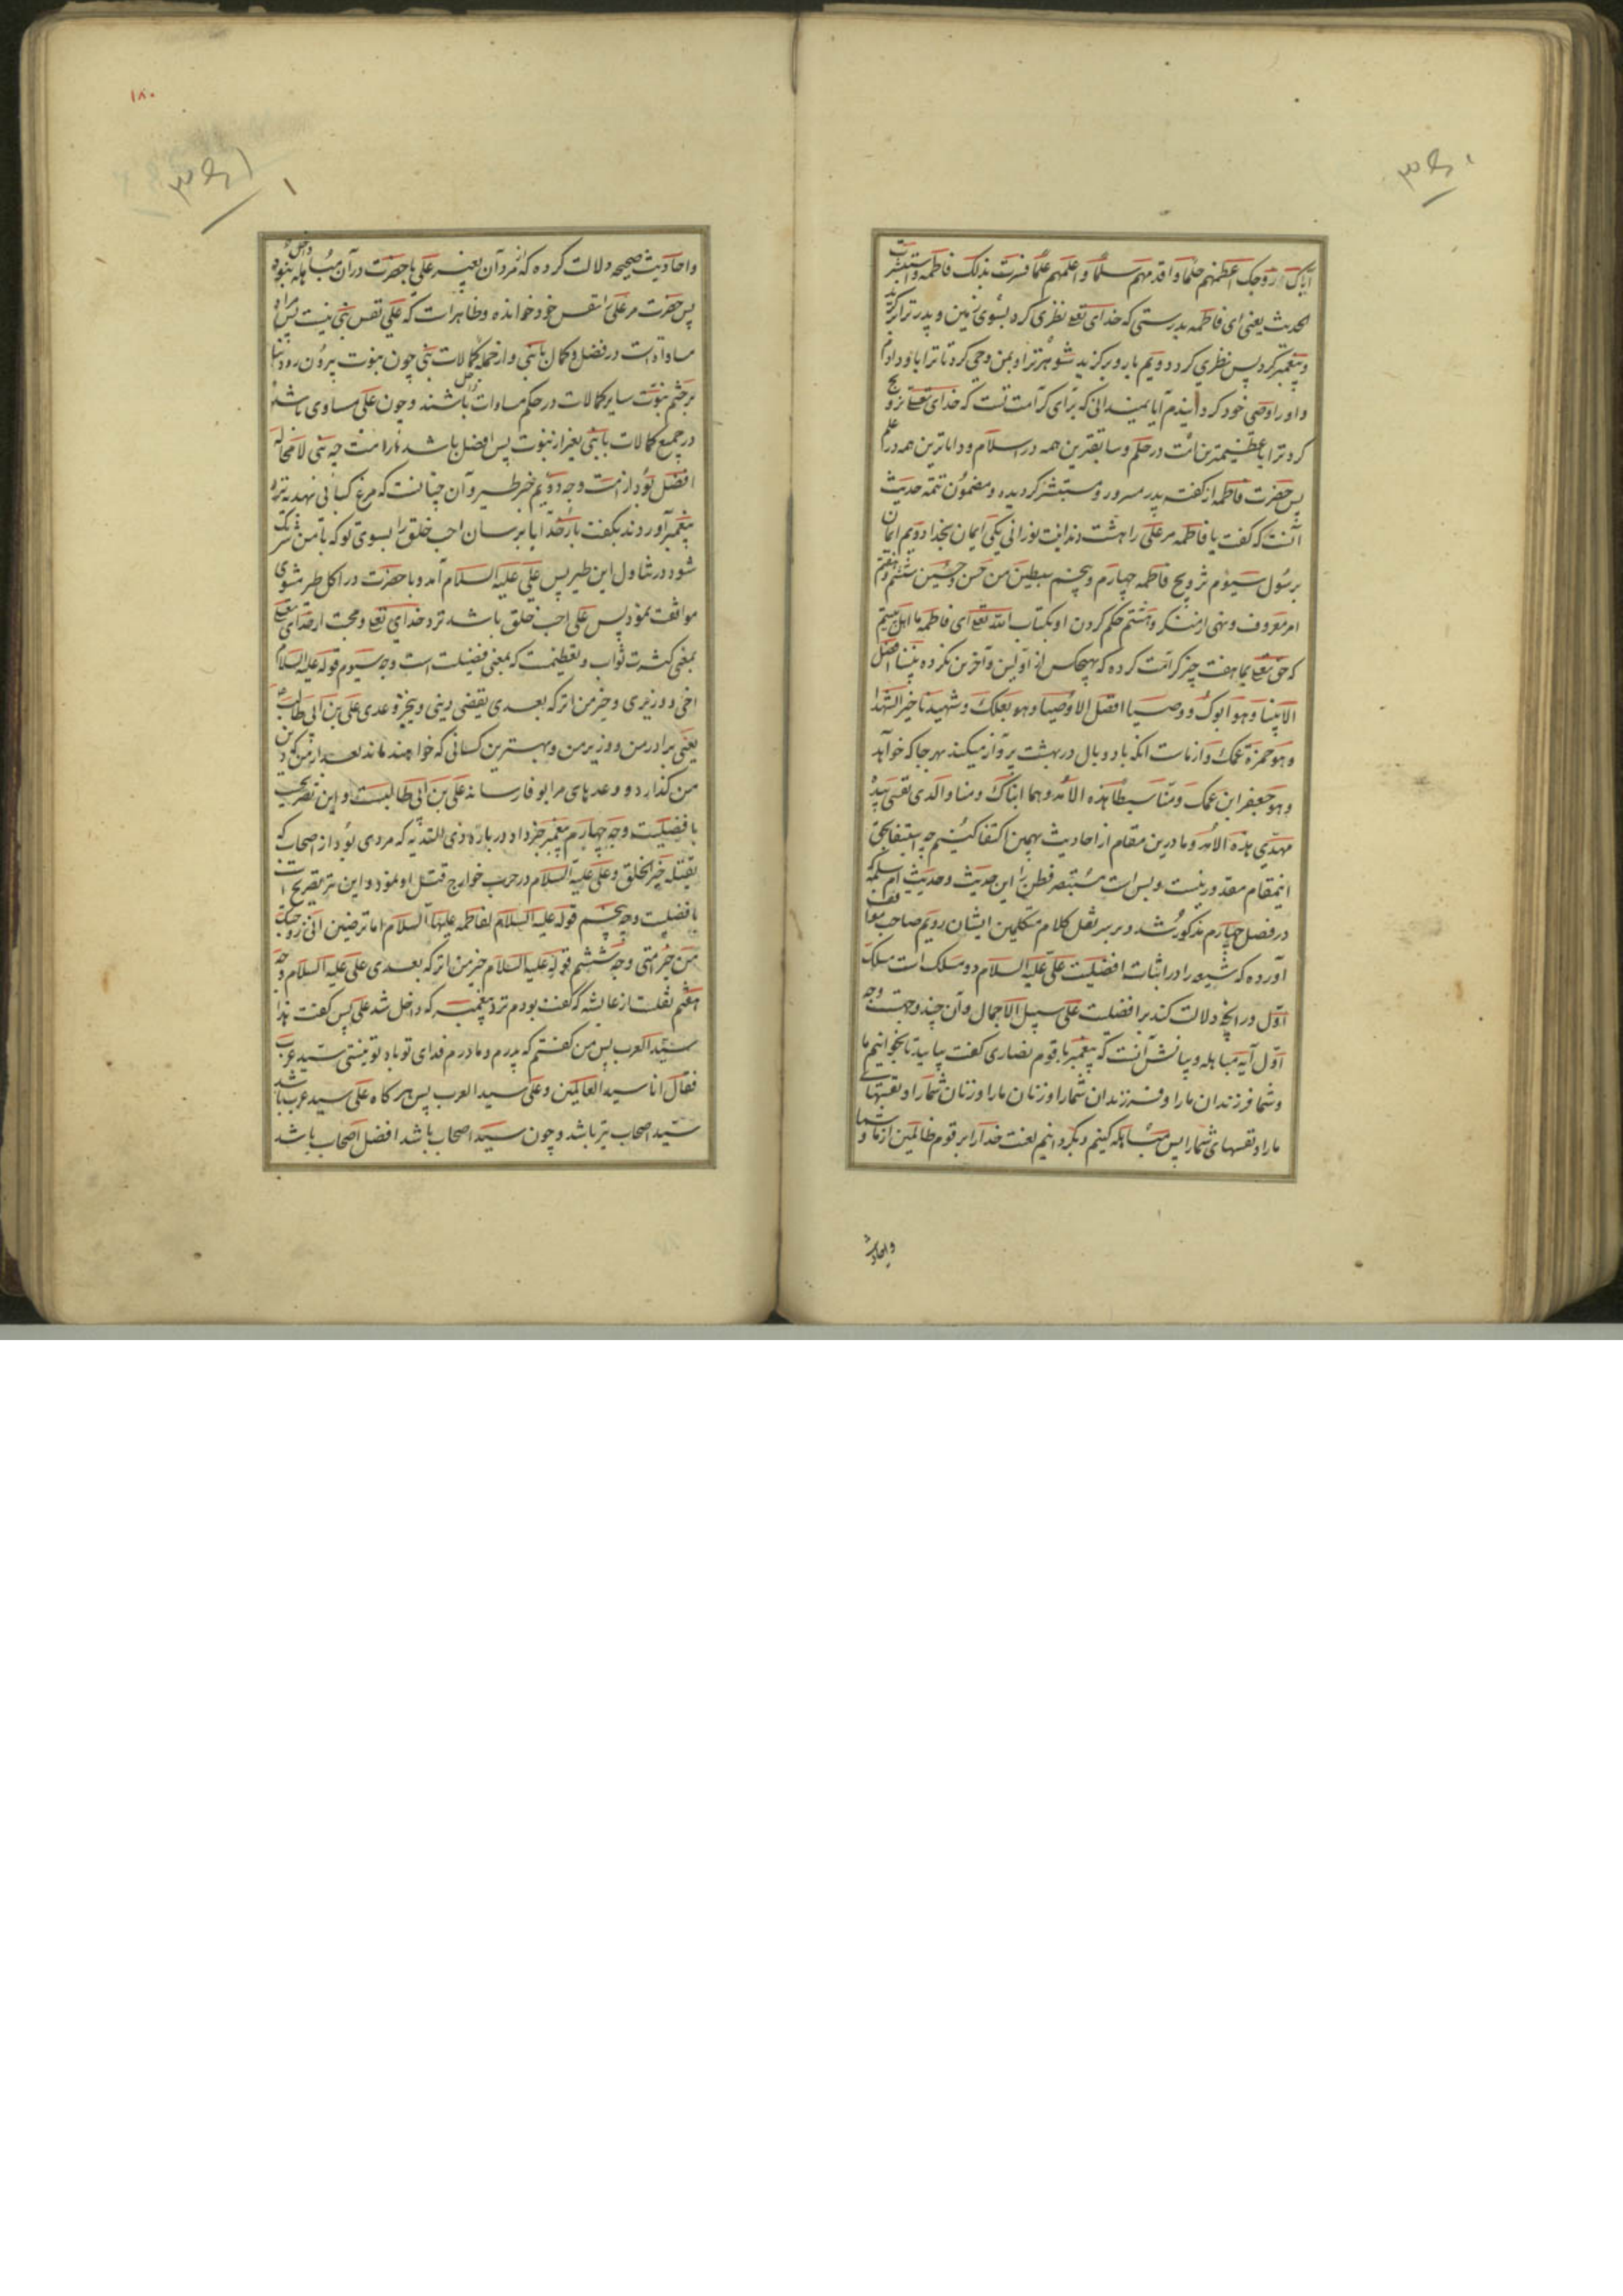 ایاک زوجک اعظمهم حلما و اقدمهم سلما و اعلمهم علما فسرت بذلک فاطمه و استبشرت
الحدیث یعنی ای فاطمه بدرستی که خدای تع نظری کرد بسوی زمین و پدر ترا برگزید
و پیغمبر کرد پس نظری کرد دویم بار و برگزید شوهر ترا و بمن وحی کرد تا ترا باو دادم
و او را وصی خود گردانیدم آیا نمیدانی که برای کرامت تست که خدای تعالی تزویج
کرد ترا باعظیمترین امت در حلم و سابقترین همه در اسلام و داناترین همه در علم
پس حضرت فاطمه از گفته پدر مسرور و مستبشر گردیده و مضمون تتمه حدیث
آنست که گفت یا فاطمه مر علی را هشت دندانست نورانی یکی ایمان بخدا دویم ایمان
برسول سیوم تزویج فاطمه چهارم و پنجم سبطین من حسن و حسین ششم و هفتم
امر معروف و نهی از منکر و هشتم حکم کردن او بکتاب الله تع ای فاطمه ما اهل بیتیم
که حق تع بما هفت چیز کرامت کرده که بهیچکس از اولین و آخرین نکرده نبینا افضل
الانبیا و هو ابوک و وصینا افضل الاوصیا و هو بعلک و شهیدنا خیر الشهدا
و هو حمزة عمک و از ماست انکه با دو بال در بهشت پرواز میکند بهر جا که خواهد
و هو جعفر ابن عمک و منا سبطا هذه الامه و هما ابناک و منا والذی نفسی بیده
مهدی هذه الامه و ما درین مقام از احادیث بهمین اکتفا کنیم چه استیفا بحق
اینمقام مقدور نیست و بس است مستبصر فطن را این حدیث و حدیث ام سلمه
در فصل چهارم مذکور شد و بر سر نقل کلام متکلمین ایشان رویم صاحب مواقف
آورده که شیعه را در اثبات افضلیت علی علیه السلام دو مسلک است مسلک
اول در انچه دلالت کند بر افضلیت علی سبیل الاجمال و آن چند وجهست وجه
اول آیه مباهله و بیانش آنست که پیغمبر با قوم نصاری گفت بیایید تا بخوانیم ما
و شما فرزندان ما را و فرزندان شما را و زنان ما را و زنان شما را و نفسهای
ما را و نفسهای شما را پس مباهله کنیم و بگردانیم لعنت خدا را بر قوم ظالمین از ما و شما
و احادیث
۱۸۰
و احادیث صحیحه دلالت کرده که مرد آن بغیر علی با حضرت در آن مباهله داخل نبوده
پس حضرت مر علی را نفس خود خوانده و ظاهر است که علی نفس نبی نیست پس مراد
مساواة است در فضل و کمال با نبی و از جمله کمالات نبی چون نبوت بیرون رود بنا
بر ختم نبوت سایر کمالات در حکم مساوات داخل باشند و چون علی مساوی باشد
در جمیع کمالات با نبی بغیر از نبوت پس افضل باشد از امت چه نبی لا محاله
افضل بود از امت وجه دویم خبر طیر و آن چنانست که مرغ کبابی نهدیه نزد
پیغمبر آوردند بگفت بار خدایا برسان احب خلق را بسوی تو که با من شریک
شود در تناول این طیر پس علی علیه السلام آمد و با حضرت در اکل طیر مشوی
موافقت نمود پس علی احب خلق باشد نزد خدای تع و محبت از خدای تع
بمعنی کثرت ثواب و تعظیمست که بمعنی فضیلت است وجه سیوم قوله علیه السلام
اخی و وزیری و خیر من اترکه بعدی یقضی دینی و ینجز وعدی علی بن ابی طالب
یعنی برادر من و وزیر من و بهترین کسانی که خواهند ماند بعد از من که دین
من گذارد و وعدهای مرا بوفا رساند علی بن ابی طالبست و این تصریحست
بافضلیت وجه چهارم پیغمبر خبر داد در باره ذی الثدیه که مردی بود از اصحاب که
یقتله خیر الخلق و علی علیه السلام در حرب خوارج قتل او نمود و این نیز تصریح است
بافضلیت وجه پنجم قوله علیه السلام لفاطمه علیها السلام اما ترضین انی زوجتک
من خیر امتی وجه ششم قوله علیه السلام خیر من اترکه بعدی علی علیه السلام وجه
هفتم نقلست از عایشه که گفت بودم نزد پیغمبر که داخل شد علی پس گفت هذا
سید العرب پس من گفتم که پدرم و مادرم فدای تو باد تو نیستی سید عرب
فقال انا سید العالمین و علی سید العرب پس هرگاه علی سید عرب باشد
سید اصحاب نیز باشد و چون سید اصحاب باشد افضل اصحاب باشد